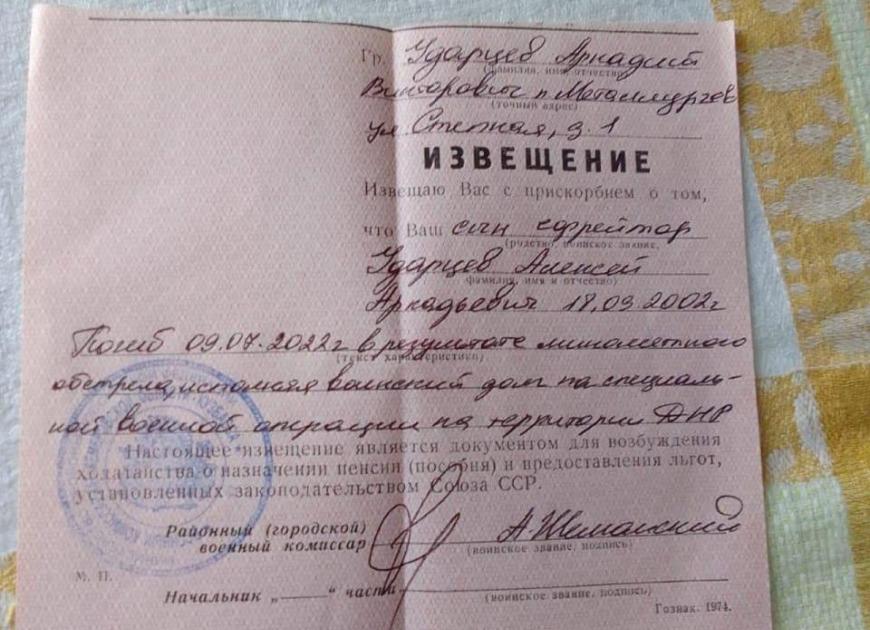 Гр. Ударцев Аркадий
(фамилия, имя, отчество)
Викторович п. Металлургов
(точный адрес)
ул. Степная, д. 1
ИЗВЕЩЕНИЕ
Извещаю Вас с прискорбием о том,
что Ваш сын ефрейтор
(родство, воинское звание,
Ударцев Алексей
фамилия, имя и отчество)
Аркадьевич 18.03.2002г
Погиб 09.07.2022г в результате минометного
(текст характеристики)
обстрела, исполняя воинский долг на специаль-
ной военной операции на территории ДНР
Настоящее извещение является документом для возбуждения
ходатайства о назначении пенсии (пособия) и предоставления льгот,
установленных законодательством Союза ССР.
Районный (городской)
военный комиссар А. Шеманский
(воинское звание, подпись)
М. П.
Начальник „——" части
(воинское звание, подпись)
Гознак. 1974.